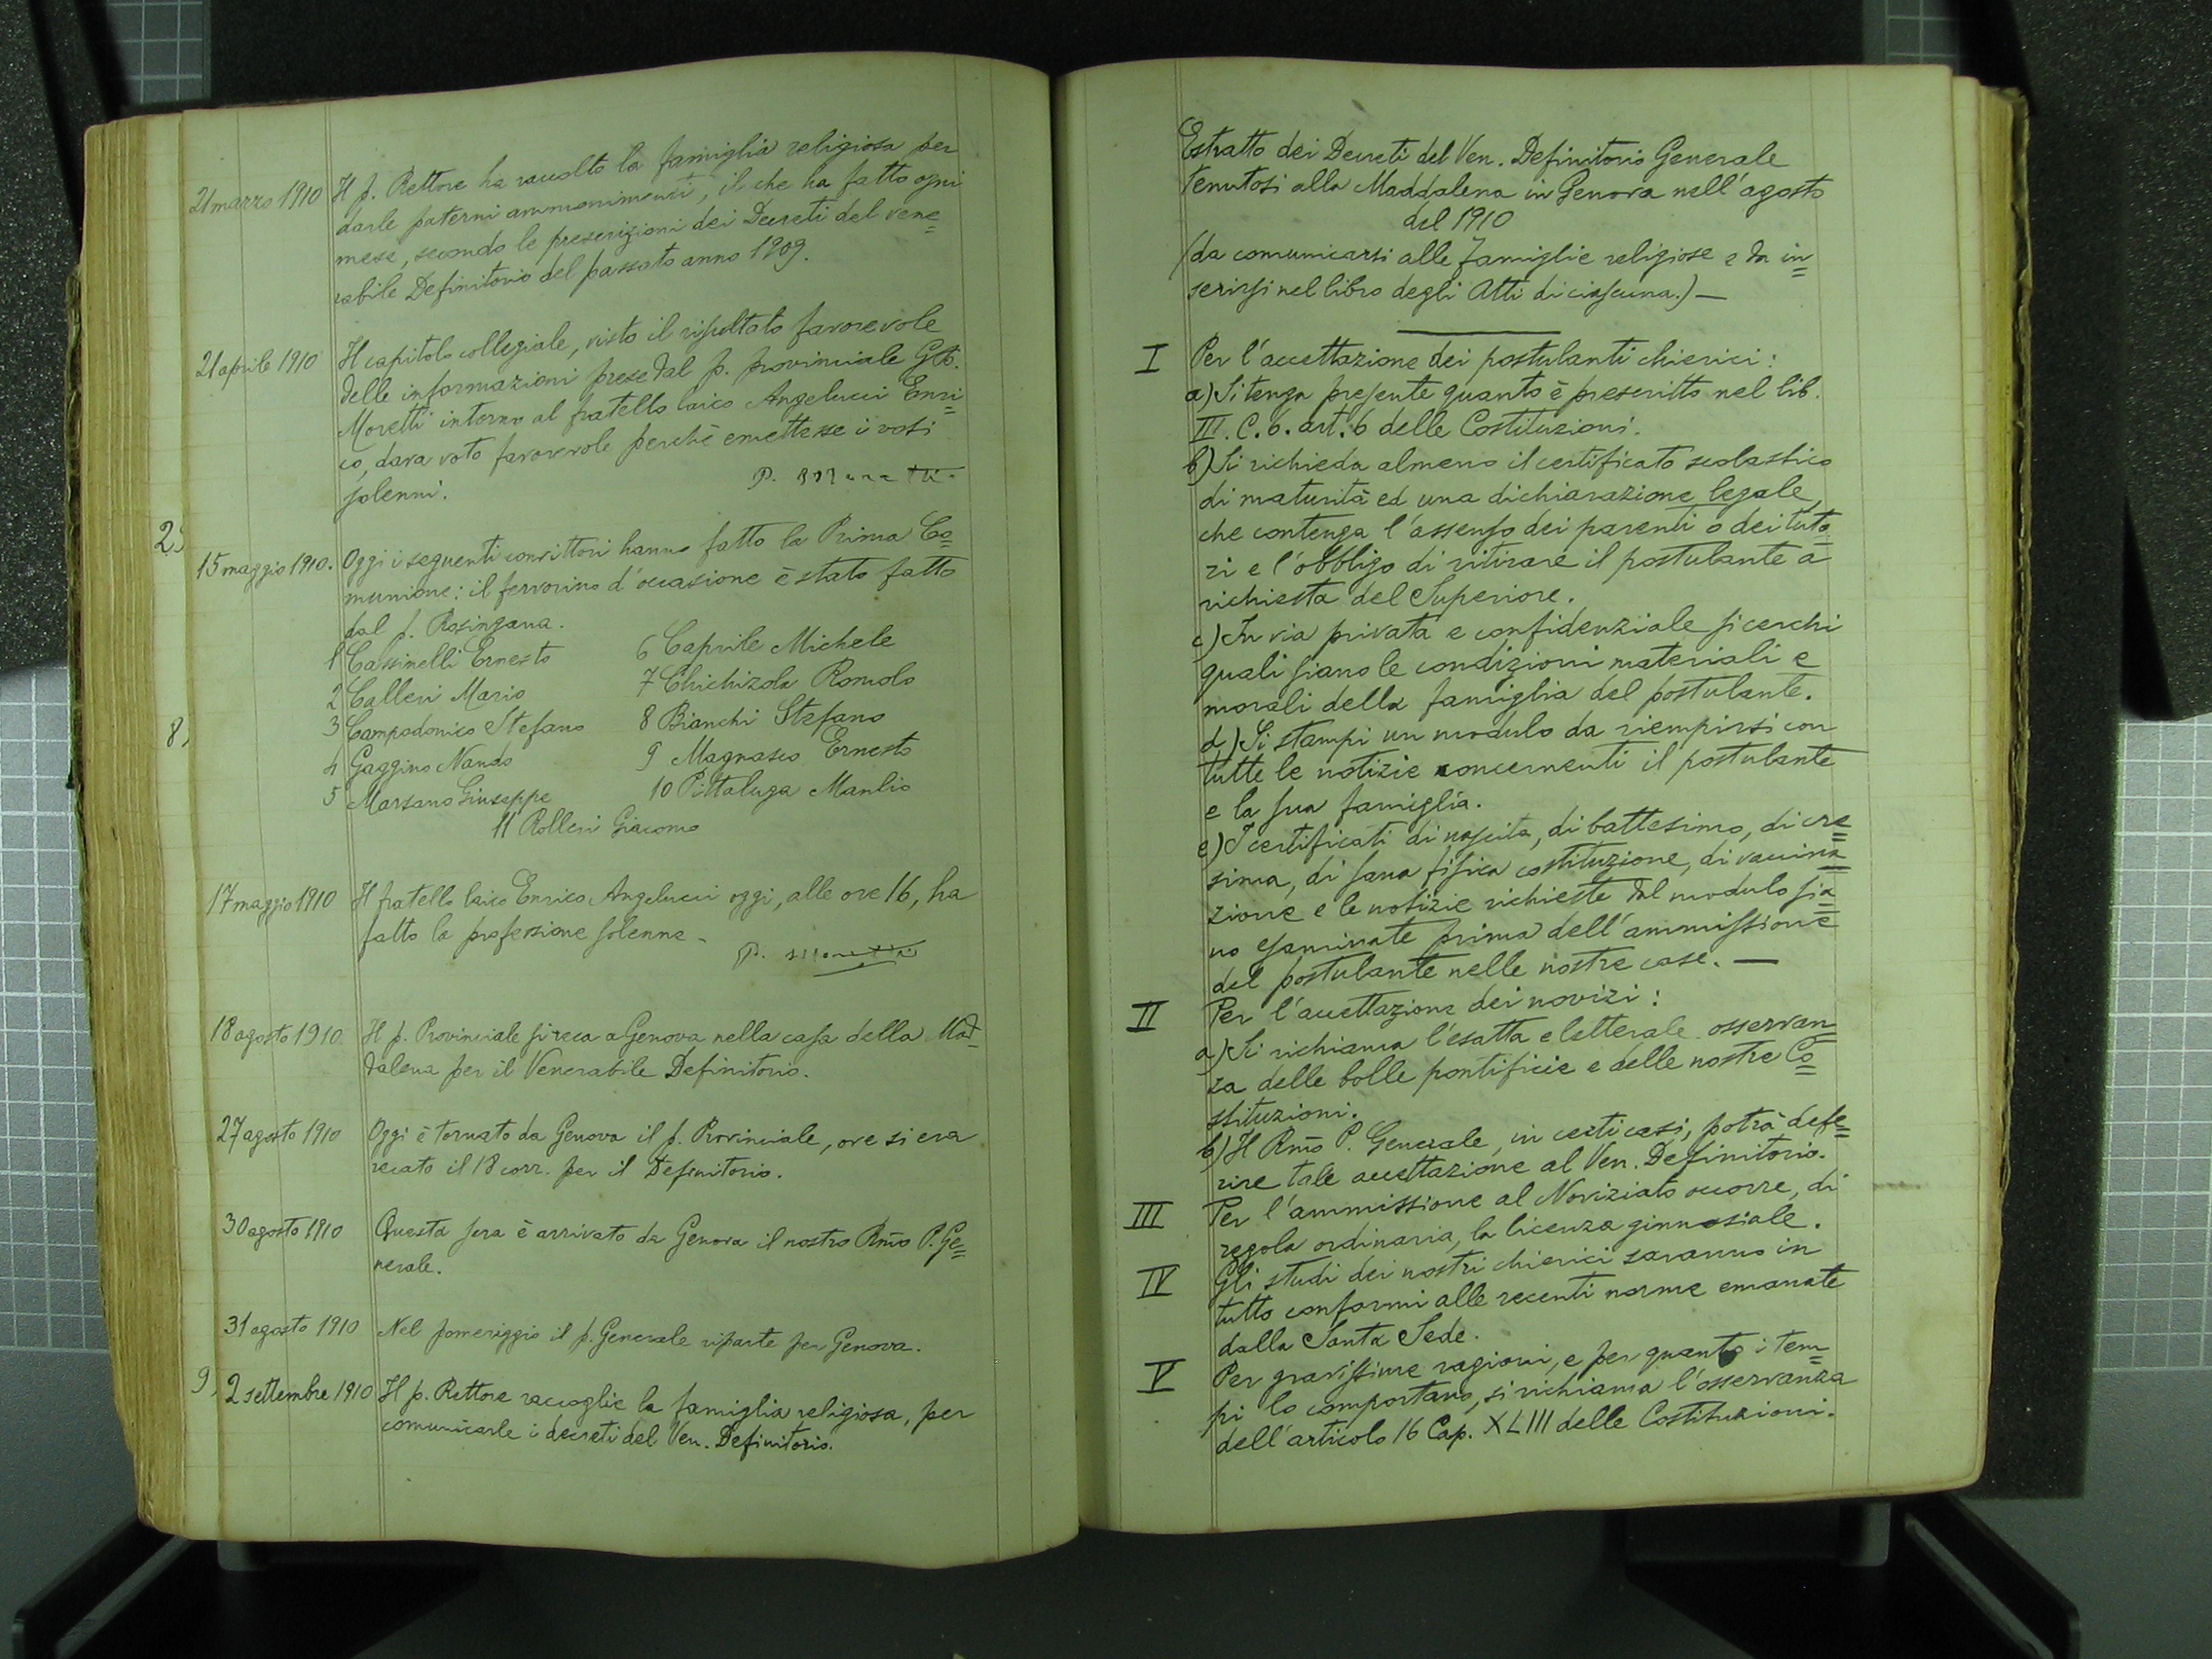 21 marzo 1910 Il p. Rettore ha raccolto la famiglia religiosa per
darle paterni ammonimenti, il che ha fatto ogni
mese, secondo le prescrizioni dei Decreti del vene=
rabile Definitorio del passato anno 1909.
21 aprile 1910 Il capitolo collegiale, visto il risultato favorevole
delle informazioni prese dal p. provinciale Gto.
Moretti intorno al fratello laico Angelucci Enri=
co, dava voto favorevole perchè emettesse i voti
solenni.
P. Moretti
15 maggio 1910. Oggi i seguenti convittori hanno fatto la Prima Co=
munione: il fervorino d'occasione è stato fatto
dal p. Rosingana.
1 Cassinelli Ernesto 6 Caprile Michele
2 Calleri Mario 7 Chichizola Romolo
3 Campodonico Stefano 8 Bianchi Stefano
4 Gaggino Nando 9 Magnasco Ernesto
5 Marsano Giuseppe 10 Pittaluga Manlio
11 Rolleri Giacomo
17 maggio 1910 Il fratello laico Enrico Angelucci oggi, alle ore 16, ha
fatto la professione solenne.
P. Moretti
18 agosto 1910. Il p. Provinciale si reca a Genova nella casa della Mad=
dalena per il Venerabile Definitorio.
27 agosto 1910 Oggi è tornato da Genova il p. Provinciale, ove si era
recato il 18 corr. per il Definitorio.
30 agosto 1910 Questa sera è arrivato da Genova il nostro Rmo P. Ge=
nerale.
31 agosto 1910 Nel pomeriggio il p. Generale riparte per Genova.
2 settembre 1910 Il p. Rettore raccoglie la famiglia religiosa, per
comunicarle i decreti del Ven. Definitorio.
Estratto dei Decreti del Ven. Definitorio Generale
tenutosi alla Maddalena in Genova nell'agosto
del 1910
(da comunicarsi alle famiglie religiose e da in=
serirsi nel libro degli Atti di ciascuna.) —
I Per l'accettazione dei postulanti chierici:
a) Si tenga presente quanto è prescritto nel lib.
III. C. 6. art. 6 delle Costituzioni.
b) Si richieda almeno il certificato scolastico
di maturità ed una dichiarazione legale,
che contenga l'assenso dei parenti o dei tuto=
ri e l'obbligo di ritirare il postulante a
richiesta del Superiore.
c) In via privata e confidenziale si cerchi
quali siano le condizioni materiali e
morali della famiglia del postulante.
d) Si stampi un modulo da riempirsi con
tutte le notizie concernenti il postulante
e la sua famiglia.
e) I certificati di nascita, di battesimo, di cre=
sima, di sana fisica costituzione, di vaccina=
zione e le notizie richieste dal modulo sia=
no esaminate prima dell'ammissione
del postulante nelle nostre case. —
II Per l'accettazione dei novizi:
a) Si richiama l'esatta e letterale osservan=
za delle bolle pontificie e delle nostre Co=
stituzioni.
b) Il Rmo P. Generale, in certi casi, potrà defe=
rire tale accettazione al Ven. Definitorio.
III Per l'ammissione al Noviziato occorre, di
regola ordinaria, la licenza ginnasiale.
IV Gli studi dei nostri chierici saranno in
tutto conformi alle recenti norme emanate
dalla Santa Sede.
V Per gravissime ragioni, e per quanto i tem=
pi lo comportano, si richiama l'osservanza
dell'articolo 16 Cap. XLIII delle Costituzioni.